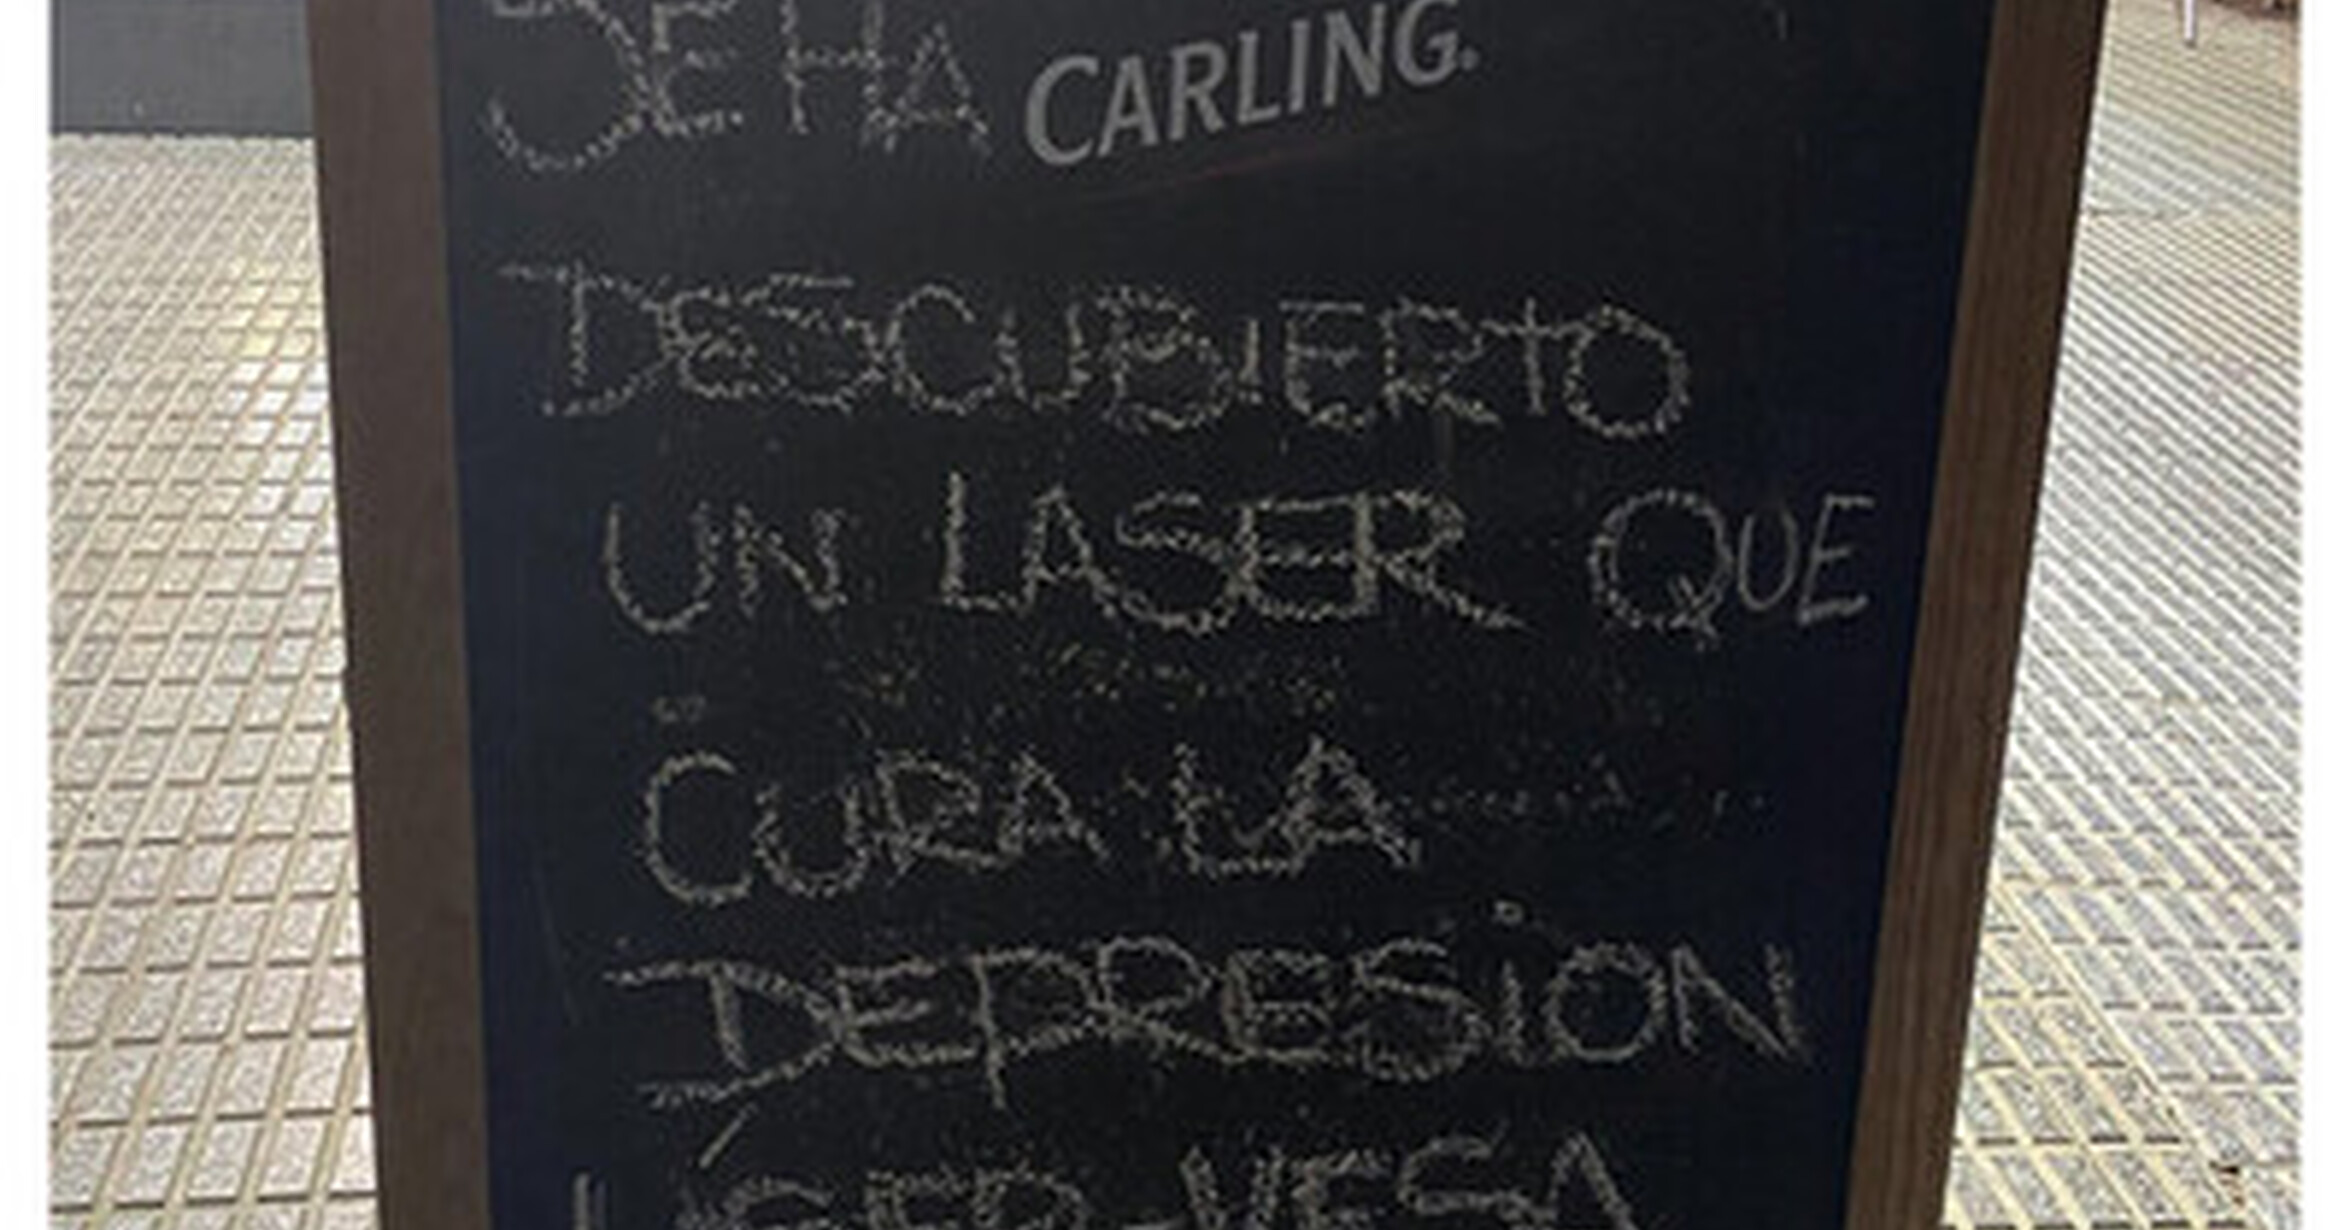 SE HA CARLING.
DESCUBIERTO
UN LASER QUE
CURA LA
DEPRESION
LÁSER-VESA